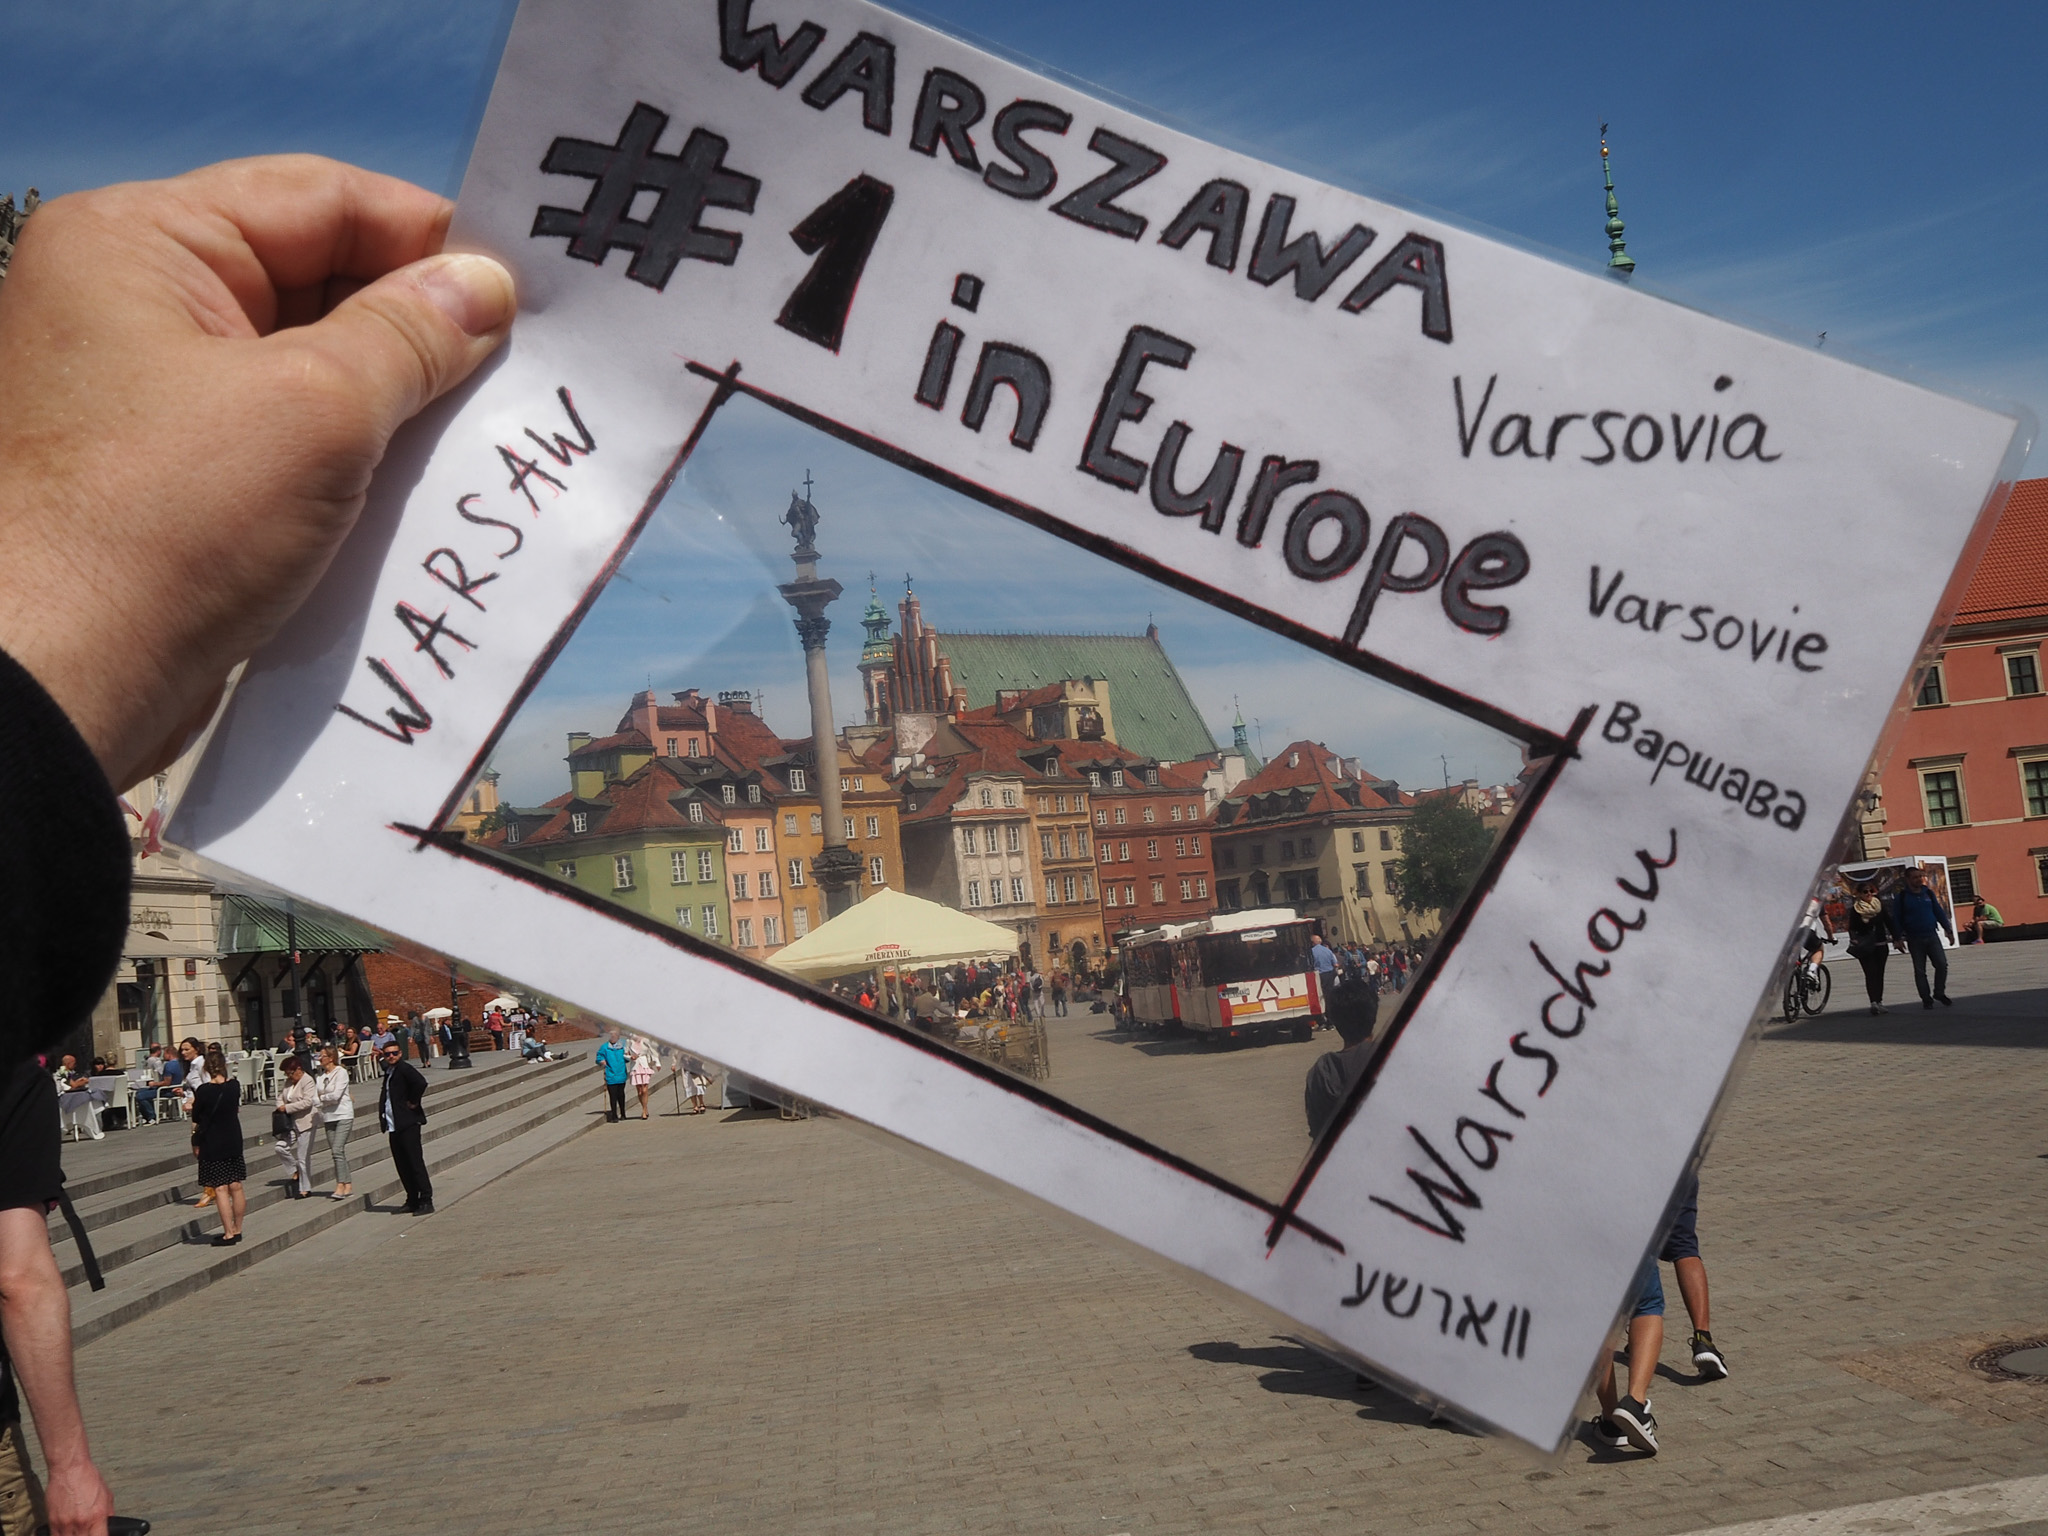 WARSZAWA
#1 in Europe
WARSAW
Varsovia
Varsovie
Варшава
Warschau
װארשע
ZWIERZYNIEC